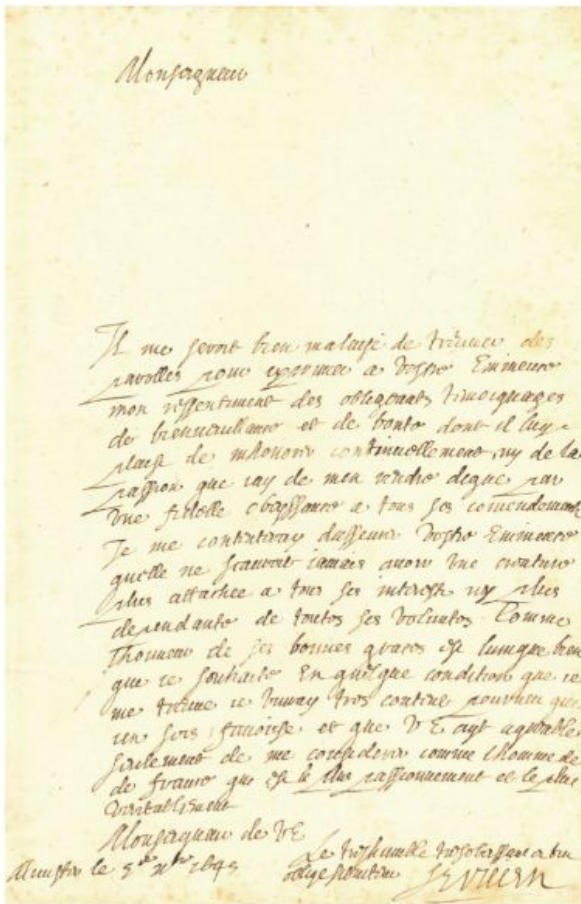 Monseigneur
Il me seroit bien malaisé de trouver des
parolles pour exprimer a Vostre Eminence
mon ressentiment des obligeants tesmoignages
de bienveuillance et de bonté dont il luy
plaist de mhonorer continuellement ny de la
passion que iay de men rendre digne par
une fidelle obeissance a tous ses comendemants
Je me contenteray dasseurer Vostre Eminence
quelle ne scauroit iamais avoir une creature
plus attachée a tous ses interests ny plus
dependante de toutes ses volontes Comme
lhonneur de ses bonnes graces est lunique bien
que ie souhaite En quelque condition que ie
me treuve ie vivray tres content pourveu que
ien sois et que V E ayt agreable
seulement de me considerer comme lhomme de
de france qui est le plus passionnement et le plus
veritablement
Monseigneur de V E
Munster le 5 1645
Le tres humble tres obeissant et tres
obligé serviteur
SERVIEN